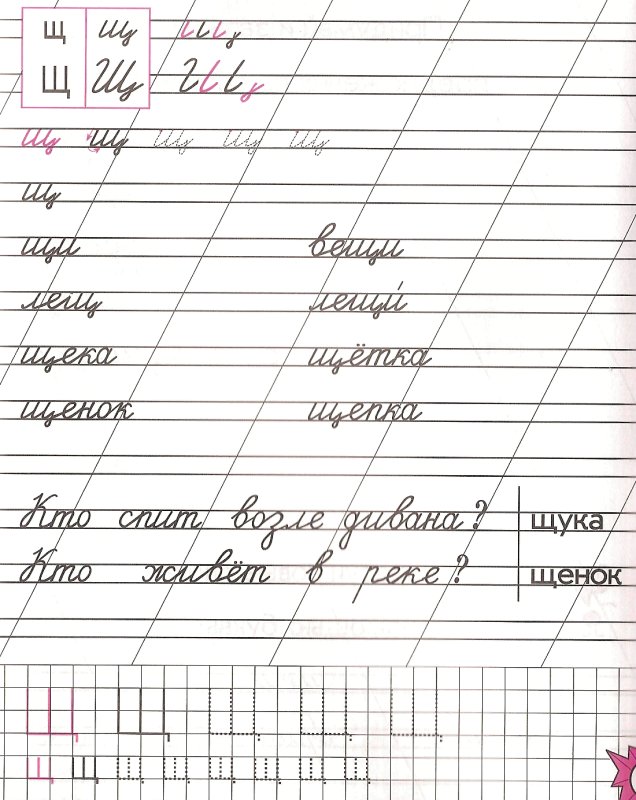 щ щ
Щ Щ
щ щ щ щ щ
щ
щи вещи
лещ лещи́
щека щётка
щенок щепка
Кто спит возле дивана? щука
Кто живёт в реке? щенок
Щ Щ Щ Щ Щ
Щ Щ Щ Щ Щ Щ Щ Щ